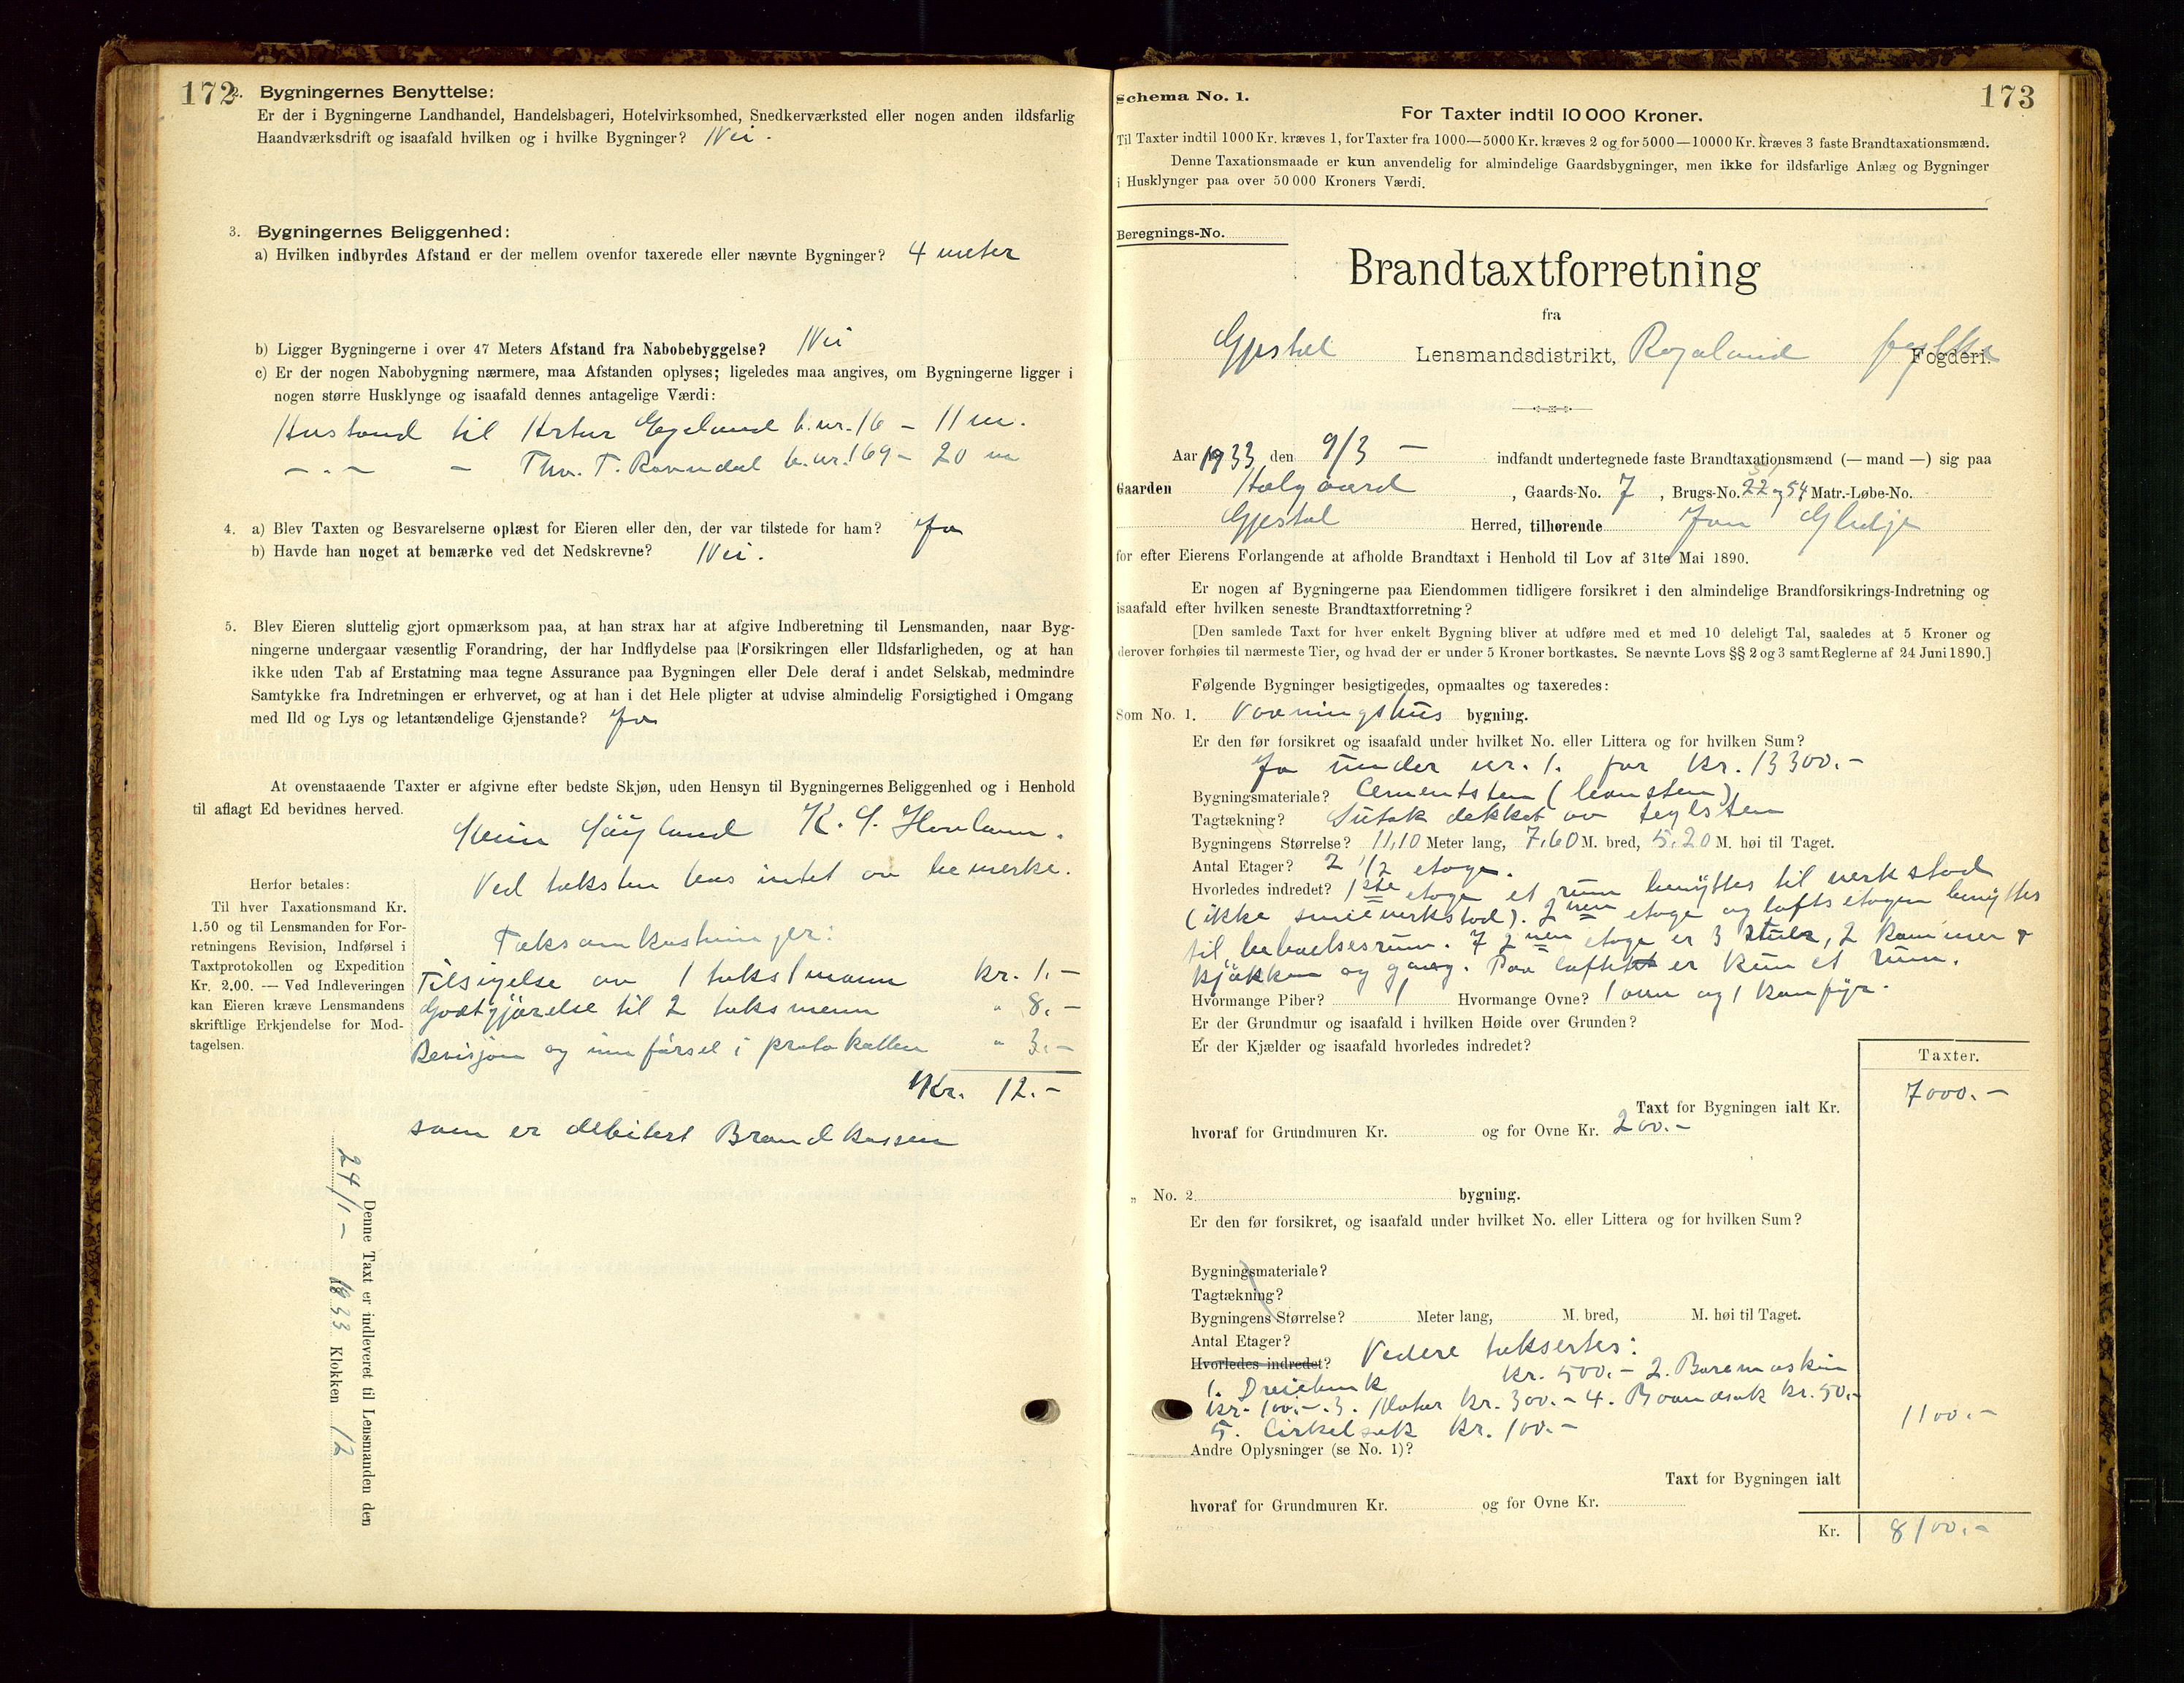 172
2. Bygningernes Benyttelse:
Er der i Bygningerne Landhandel, Handelsbageri, Hotelvirksomhed, Snedkerværksted eller nogen anden ildsfarlig
Haandværksdrift og isaafald hvilken og i hvilke Bygninger? Nei.
3. Bygningernes Beliggenhed:
a) Hvilken indbyrdes Afstand er der mellem ovenfor taxerede eller nævnte Bygninger? 4 meter
b) Ligger Bygningerne i over 47 Meters Afstand fra Nabobebyggelse? Nei
c) Er der nogen Nabobygning nærmere, maa Afstanden oplyses; ligeledes maa angives, om Bygningerne ligger i
nogen større Husklynge og isaafald dennes antagelige Værdi:
til Artur Egeland b.nr. 16 - 11 m.
- " - - T. Ravndal b.nr. 169 - 20 m
4. a) Blev Taxten og Besvarelserne oplæst for Eieren eller den, der var tilstede for ham? Ja
b) Havde han noget at bemærke ved det Nedskrevne? Nei.
5. Blev Eieren sluttelig gjort opmærksom paa, at han strax har at afgive Indberetning til Lensmanden, naar Byg-
ningerne undergaar væsentlig Forandring, der har Indflydelse paa Forsikringen eller Ildsfarligheden, og at han
ikke uden Tab af Erstatning maa tegne Assurance paa Bygningen eller Dele deraf i andet Selskab, medmindre
Samtykke fra Indretningen er erhvervet, og at han i det Hele pligter at udvise almindelig Forsigtighed i Omgang
med Ild og Lys og letantændelige Gjenstande? Ja
At ovenstaaende Taxter er afgivne efter bedste Skjøn, uden Hensyn til Bygningernes Beliggenhed og i Henhold
til aflagt Ed bevidnes herved.
K. S.
Ved taksten bes intet av bemerke.
Herfor betales:
Til hver Taxationsmand Kr.
1.50 og til Lensmanden for For-
retningens Revision, Indførsel i
Taxtprotokollen og Expedition
Kr. 2.00. — Ved Indleveringen
kan Eieren kræve Lensmandens
skriftlige Erkjendelse for Mod-
tagelsen.
Taksomkostninger:
Tilsigelse av 1 takstmann kr. 1.-
Godtgjørelse til 2 taksmenn " 8.-
Revisjon og innførsel i protokollen " 3.-
Kr. 12.-
som er debitert Brandkassen
Denne Taxt er indleveret til Lensmanden den
24/1 - 1933 Klokken 12
173
Schema No. 1.
For Taxter indtil 10 000 Kroner.
Til Taxter indtil 1000 Kr. kræves 1, for Taxter fra 1000—5000 Kr. kræves 2 og for 5000—10000 Kr. kræves 3 faste Brandtaxationsmænd.
Denne Taxationsmaade er kun anvendelig for almindelige Gaardsbygninger, men ikke for ildsfarlige Anlæg og Bygninger
i Husklynger paa over 50 000 Kroners Værdi.
Beregnings-No.
Brandtaxtforretning
fra
Gjestal Lensmandsdistrikt, Rogaland fylke Fogderi.
Aar 1933 den 9/3 - indfandt undertegnede faste Brandtaxationsmænd (— mand —) sig paa
Gaarden Aalgaard, Gaards-No. 7, Brugs-No. 22 og 54 Matr.-Løbe-No.
Gjestal Herred, tilhørende Jon
for efter Eierens Forlangende at afholde Brandtaxt i Henhold til Lov af 31te Mai 1890.
Er nogen af Bygningerne paa Eiendommen tidligere forsikret i den almindelige Brandforsikrings-Indretning og
isaafald efter hvilken seneste Brandtaxtforretning?
[Den samlede Taxt for hver enkelt Bygning bliver at udføre med et med 10 deleligt Tal, saaledes at 5 Kroner og
derover forhøies til nærmeste Tier, og hvad der er under 5 Kroner bortkastes. Se nævnte Lovs §§ 2 og 3 samt Reglerne af 24 Juni 1890.]
Følgende Bygninger besigtigedes, opmaaltes og taxeredes:
Som No. 1. Vaaningshus bygning.
Er den før forsikret og isaafald under hvilket No. eller Littera og for hvilken Sum?
Ja under nr. 1. for kr. 13300.-
Bygningsmateriale? Cementsten (leansten)
Tagtækning? Sutak dekket av teglsten
Bygningens Størrelse? 11,10 Meter lang, 7,60 M. bred, 5,20 M. høi til Taget.
Antal Etager? 2 1/2 etage.
Hvorledes indredet? 1ste etage et rum benyttes til verkstad
(ikke smieverkstad). 2nen etage og loftsetagen benyttes
til beboelsesrum. I 2nen etage er 3 stuer, 2 kammer &
kjøkken og gang. Paa loftet er kun et rum.
Hvormange Piber? 1 Hvormange Ovne? 1 ovn og 1 komfyr.
Er der Grundmur og isaafald i hvilken Høide over Grunden?
Er der Kjælder og isaafald hvorledes indredet?
Taxter.
Taxt for Bygningen ialt Kr. 7000.-
hvoraf for Grundmuren Kr. og for Ovne Kr. 200.-
„ No. 2 bygning.
Er den før forsikret, og isaafald under hvilket No. eller Littera og for hvilken Sum?
Bygningsmateriale?
Tagtækning?
Bygningens Størrelse? Meter lang, M. bred, M. høi til Taget.
Antal Etager?
Hvorledes indredet? Videre taksertes:
1. Dreiebenk kr. 500.- 2. Boremaskin
kr. 100.- 3. Motor kr. 300.- 4. Baandsak kr. 50.-
5. Cirkelsak kr. 100.- 1100.-
Andre Oplysninger (se No. 1)?
Taxt for Bygningen ialt
hvoraf for Grundmuren Kr. og for Ovne Kr.
Kr. 8100.-